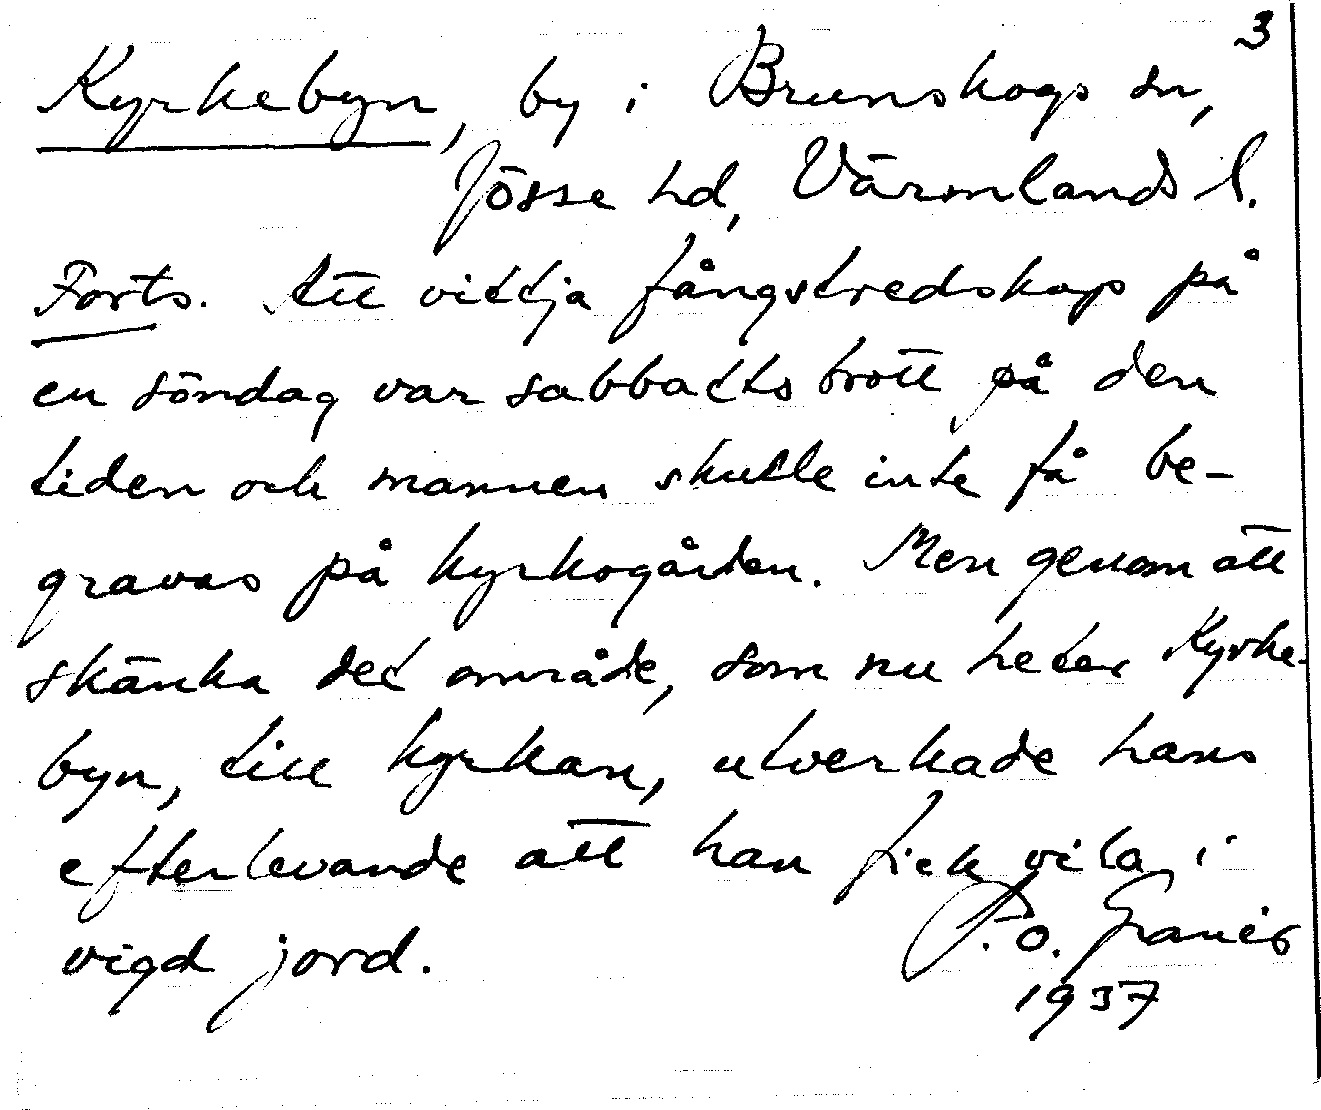 3
Kyrkebyn, by i Brunskogs sn,
Jösse hd, Värmlands l.
Forts. Att vittja fångstredskap på
en söndag var sabbattsbrott på den
tiden och mannen skulle inte få be-
gravas på kyrkogården. Men genom att
skänka det område, som nu heter Kyrke-
byn, till kyrkan, utverkade hans
efterlevande att han fick vila i
vigd jord.
P.O. Granér
1937